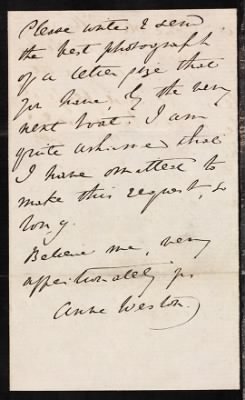 Please write & send
the best photograph
of a letter size that
you have, by the very
next boat. I am
quite ashamed that
I have omitted to
make this request, so
long.
Believe me, very
affectionately yrs.
Anne Weston.